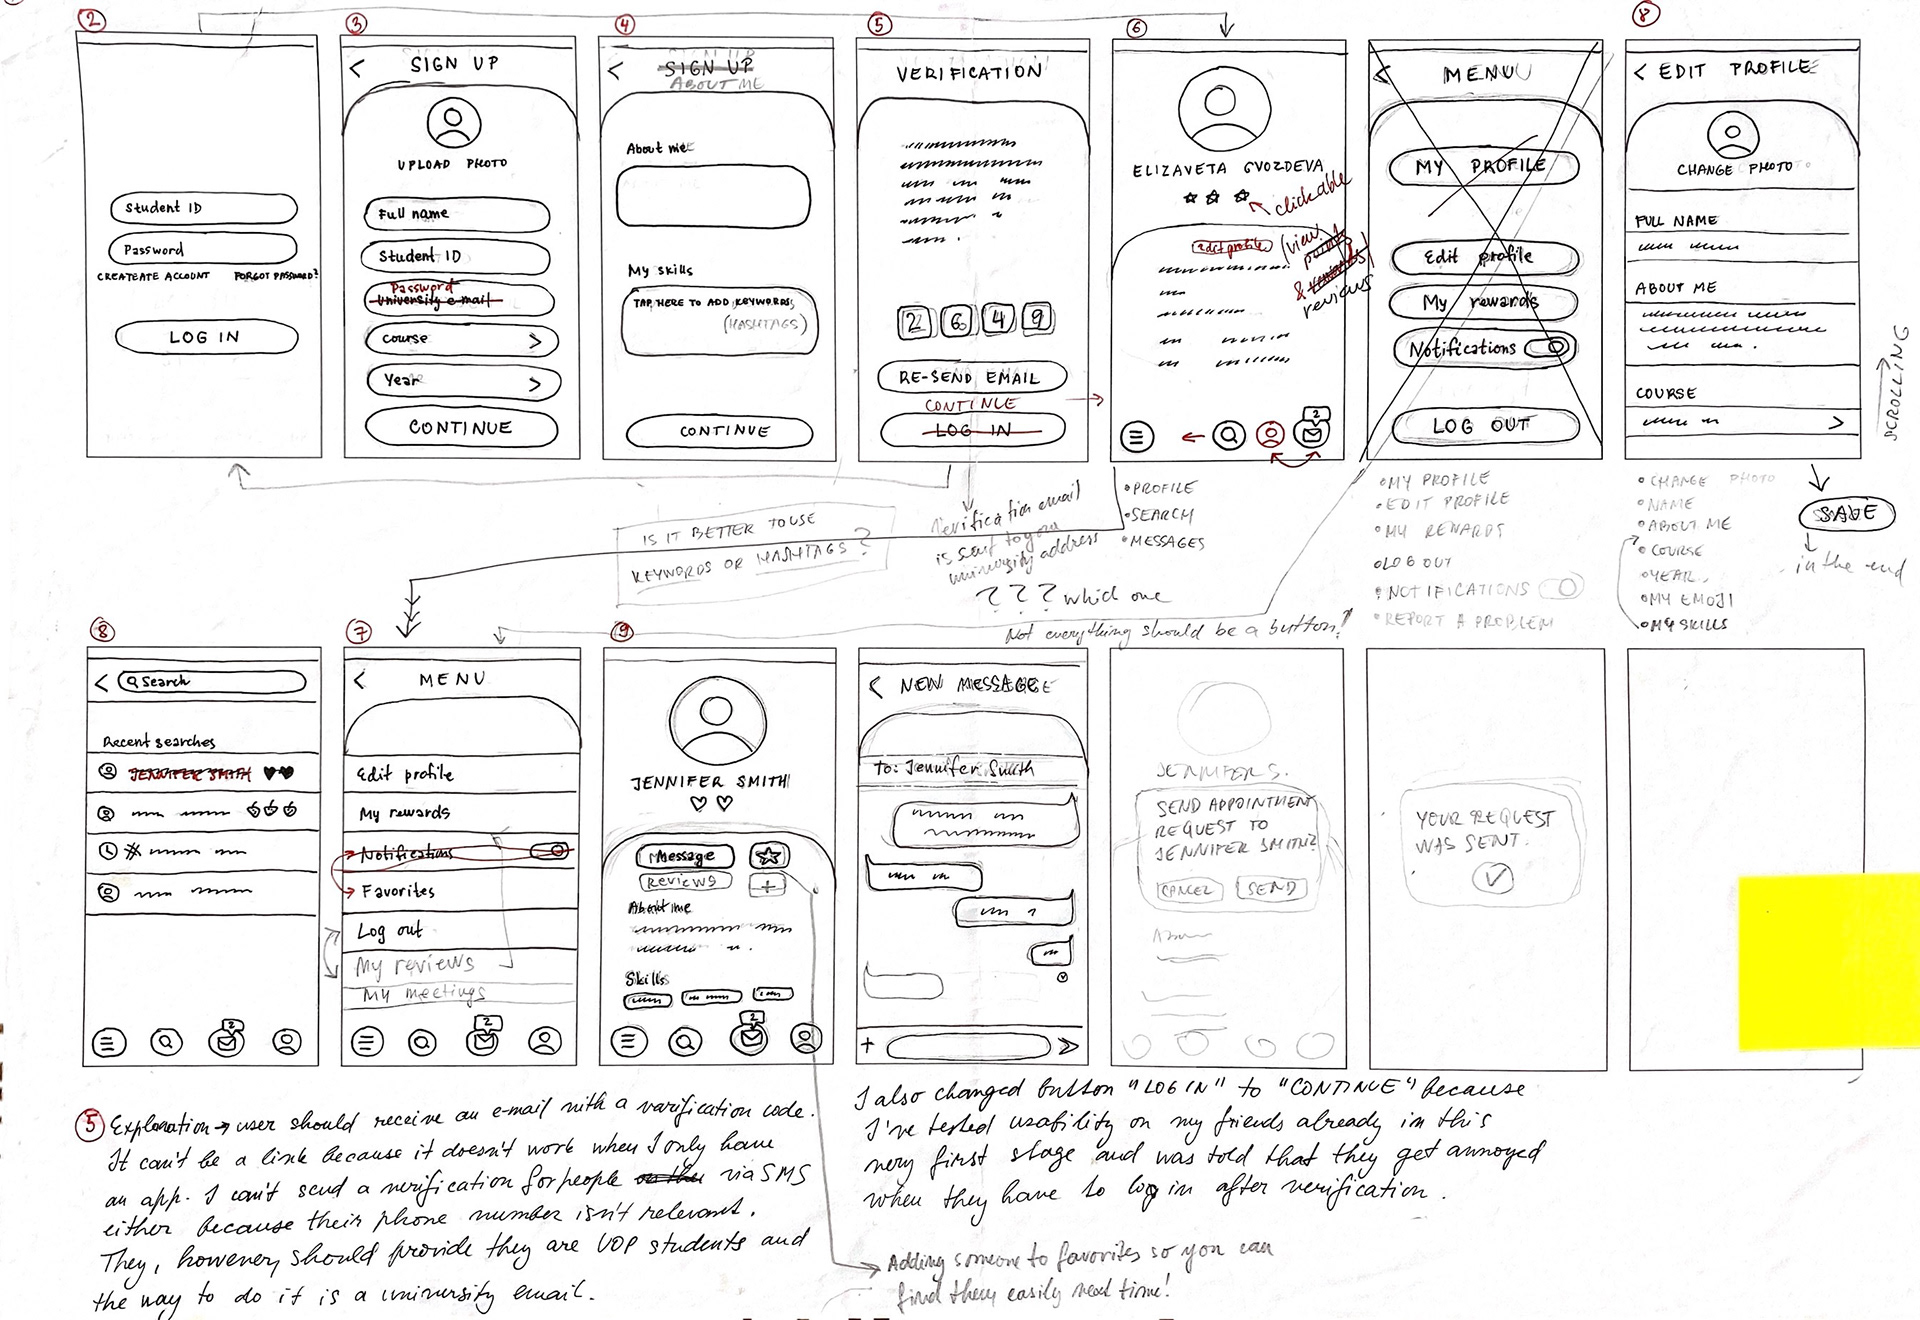 2
Student ID
Password
CREATEATE ACCOUNT
FORGOT PASSWORD?
LOG IN
3
SIGN UP
UPLOAD PHOTO
Full name
Student ID
Password
University e-mail
course
Year
CONTINUE
4
SIGN UP
ABOUT ME
About me
My skills
TAP HERE TO ADD KEYWORDS
(HASHTAGS)
CONTINUE
5
VERIFICATION
2 6 4 9
RE-SEND EMAIL
CONTINUE
LOG IN
6
ELIZAVETA GVOZDEVA
clickable
edit profile
(view
points
& rewards)
reviews
2
MENU
MY PROFILE
Edit profile
My rewards
Notifications
LOG OUT
8
EDIT PROFILE
CHANGE PHOTO
FULL NAME
ABOUT ME
COURSE
SCROLLING
IS IT BETTER TO USE
KEYWORDS OR HASHTAGS?
Verification email
is sent to your
university address
??? which one
•PROFILE
•SEARCH
•MESSAGES
•MY PROFILE
•EDIT PROFILE
•MY REWARDS
•LOG OUT
•NOTIFICATIONS
•REPORT A PROBLEM
Not everything should be a button!
•CHANGE PHOTO
•NAME
•ABOUT ME
•COURSE
•YEAR
•MY EMOJI
•MY SKILLS
SAVE
in the end
8
Search
Recent searches
JENNIFER SMITH
2
7
MENU
Edit profile
My rewards
Notifications
Favorites
Log out
My reviews
My meetings
2
9
JENNIFER SMITH
Message
Reviews
+
About me
Skills
2
NEW MESSAGE
To: Jennifer Smith
+
JENNIFER S.
SEND APPOINTMENT
REQUEST TO
JENNIFER SMITH?
CANCEL
SEND
YOUR REQUEST
WAS SENT.
5 Explanation → user should receive an e-mail with a varification code.
It can't be a link because it doesn't work when I only have
an app. I can't send a verification for people via SMS
either because their phone number isn't relevant.
They, however, should provide they are UOP students and
the way to do it is a university email.
I also changed button "LOG IN" to "CONTINUE" because
I've tested usability on my friends already in this
very first stage and was told that they get annoyed
when they have to log in after verification.
Adding someone to favorites so you can
find them easily next time!